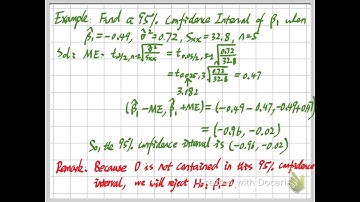 Example: Find a 95% Confidence Interval of β₁ when
β̂₁ = -0.49, σ̂² = 0.72, Sxx = 32.8, n=5
Sol: ME = t α/2, n-2 √(σ̂²/Sxx) = t 0.05/2, 5-2 √(0.72/32.8)
= t 0.025, 3 √(0.72/32.8) = 0.47
3.182
(β̂₁ - ME, β̂₁ + ME) = (-0.49 - 0.47, -0.49 + 0.47)
= (-0.96, -0.02)
So, the 95% confidence interval is (-0.96, -0.02)
Remark: Because 0 is not contained in this 95% confidence
interval, we will reject H₀: β₁ = 0.
with Docer